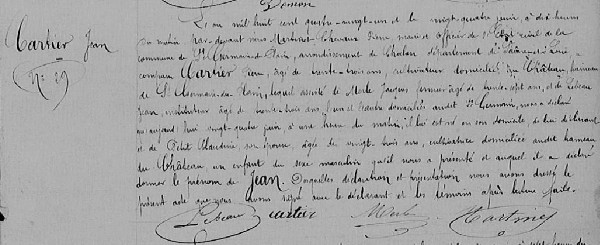 L'an mil huit cent quatre-vingt-un et le vingt-quatre juin, à dix heures
Cartier Jean
du matin par devant nous Martinet Pierre, maire et officier de l'Etat civil de la
commune de St Germain du Plain, arrondissement de Chalon département de Saône et Loire
comparu Cartier Pierre, âgé de trente-trois ans, cultivateur domicilié au Château, hameau
No 29
de St Germain du Plain, lequel assisté de Merle Jacques fermier âgé de trente-sept ans, et de Lebeau
Jean, instituteur âgé de trente-trois ans, l'un et l'autre domiciliés audit St Germain, nous a déclaré
qu'aujourd'hui vingt-quatre juin, à une heure du matin, il lui est né en son domicile, de lui déclarant
et de Petit Claudine, son épouse, âgée de vingt-trois ans, cultivatrice domiciliée audit hameau
du Château, un enfant du sexe masculin qu'il nous a présenté et auquel il a déclaré
donner le prénom de Jean. Desquelles déclaration et présentation nous avons dressé le
présent acte que nous avons signé avec le déclarant et les témoins après lecture faite.
Lebeau Cartier Merle Martinet